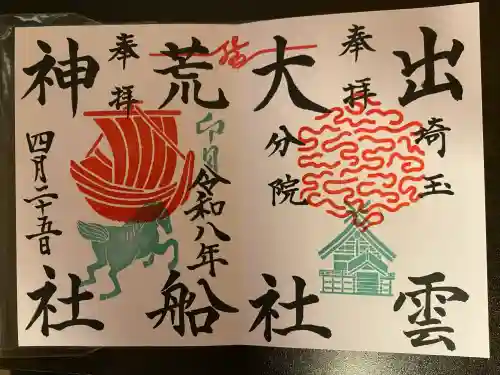 出雲
埼玉
奉拝
大社
分院
荒船
卯月
令和八年
奉拝
神社
四月二十五日